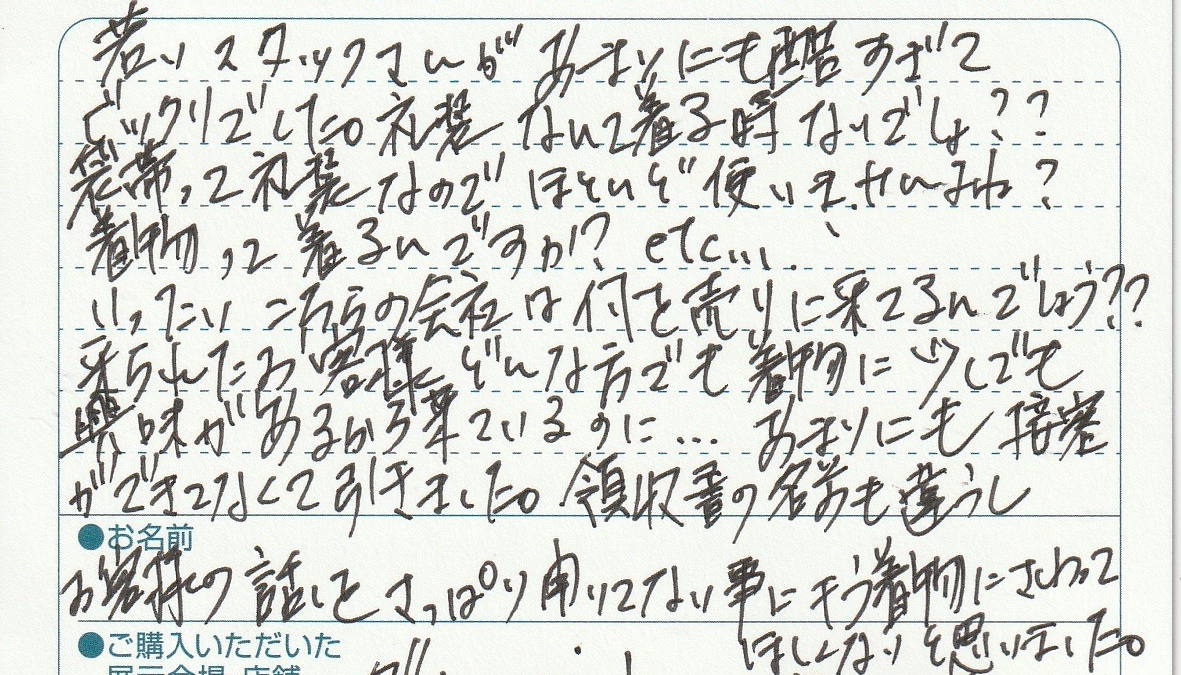 若いスタッフさんがあまりにも酷すぎて
ビックリでした。礼装なんて着る時ないでしょ??
袋帯って礼装なのでほとんど使いませんよね?
着物って着るんですか!? etc...
いったいこちらの会社は何を売りに来てるんでしょう??
来られたお客様どんな方でも着物に少しでも
興味があるから来ているのに... あまりにも接客
ができてなくて引きました。領収書の名前も違うし
●お名前
お客様の話しをさっぱり聞いてない事にもう着物にさわって
ほしくないと思いました。
●ご購入いただいた
展示会場・店舗